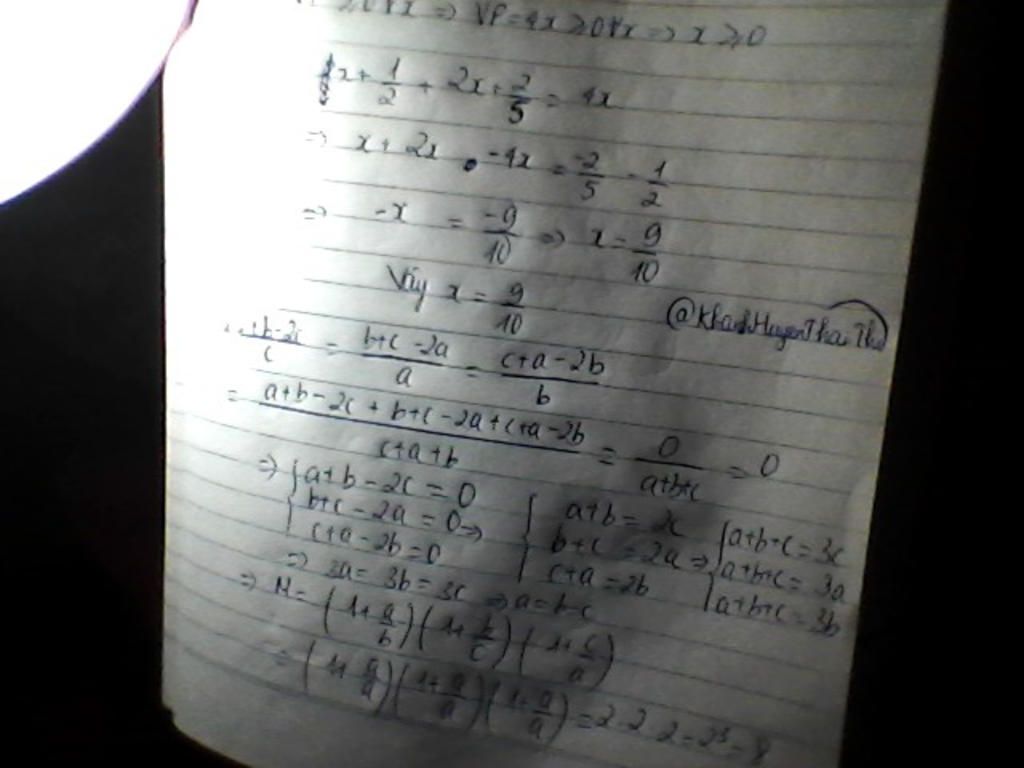 ≥0 ∀x ⇒ VP = 4x ≥ 0 ∀x ⇒ x ≥ 0
x + 1/2 + 2x + 2/5 = 4x
⇒ x + 2x - 4x = -2/5 - 1/2
⇒ -x = -9/10 ⇒ x = 9/10
Vậy x = 9/10
@KhanhHuyenThaiThu
+b-2c/c = b+c-2a/a = c+a-2b/b
= a+b-2c+b+c-2a+c+a-2b/c+a+b = 0/a+b+c = 0
⇒ { a+b-2c=0 { a+b=2c { a+b+c=3c
b+c-2a=0 ⇒ b+c=2a ⇒ a+b+c=3a
c+a-2b=0 c+a=2b a+b+c=3b
⇒ 3a=3b=3c ⇒ a=b=c
⇒ M = (1+a/b)(1+b/c)(1+c/a)
= (1+a/a)(1+a/a)(1+a/a) = 2.2.2=2³=8